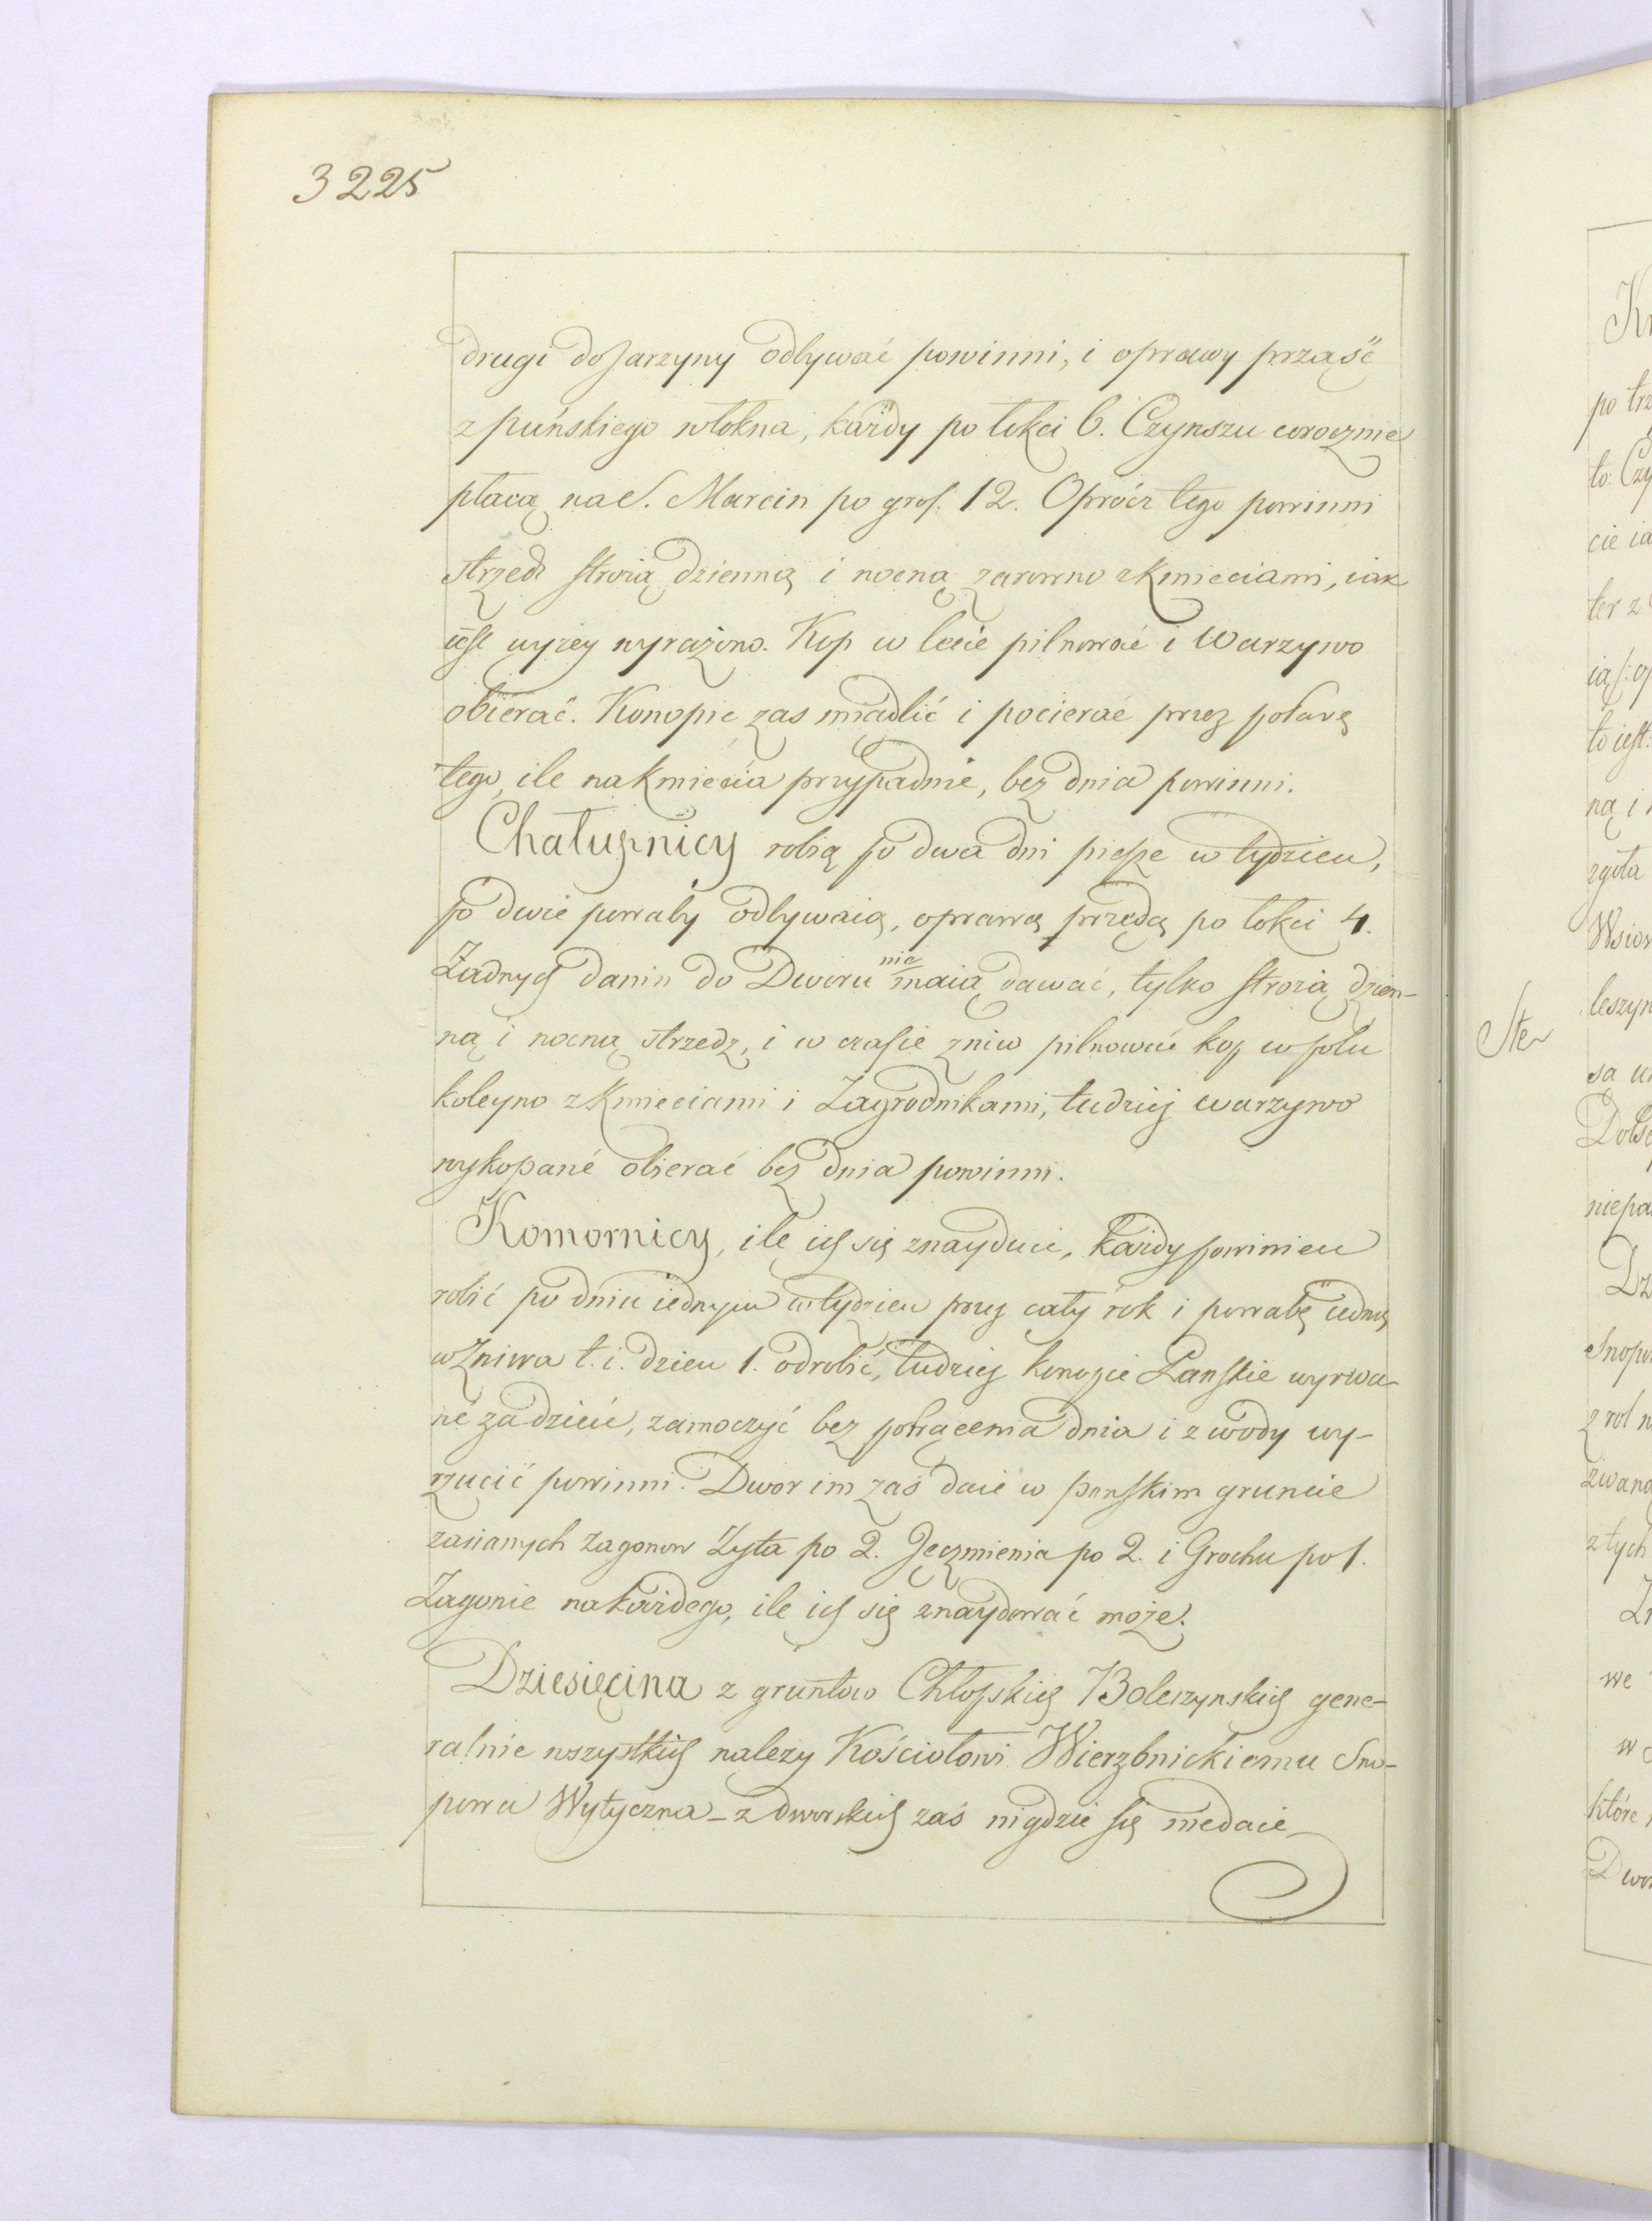 3225
drugi do Jarzyny odbywać powinni, i oprawy prząść
z pańskiego włokna, każdy po łokci 6. Czynszu corocznie
płacą na S. Marcin po gros. 12. Oprócz tego powinni
strzedz strożą dzienną i nocną zarowno z Kmieciami, iak
iest wyżey wyrażono. Kop w lecie pilnować i Warzywo
obierać. Konopie zas miądlić i pocierać przez połowę
tego, ile na Kmiecia przypadnie, bez dnia powinni.
Chałupnicy robią po dwa dni piesze w tydzień,
po dwie powaby odbywaią, oprawę przędą po łokci 4.
Żadnych danin do Dworu nie maią dawać, tylko strożą dzien-
ną i nocną strzedz, i w czasie żniw pilnować kop w polu
koleyno z Kmieciami i Zagrodnikami, tudzież warzywo
wykopané obierać bez dnia powinni.
Komornicy, ile ich się znayduie, każdy powinien
robić po dniu iednym w tydzień przez cały rok i powabę iedną
w Żniwa t. i. dzień 1. odrobić, tudzież konopie Panskie wyrwa-
né za dzień, zamoczyć bez potrącenia dnia i z wody wy-
rzucić powinni. Dwor im zaś daie w panskim gruncie
zasianych zagonow Żyta po 2. Jęczmienia po 2. i Grochu po 1.
Zagonie na każdego, ile ich się znaydować może.
Dziesięcina z gruntow Chłopskich Boleszynskich gene-
ralnie wszystkich należy Kościołowi Wierzbnickiemu Sno-
powa Wytyczna - z dworskich zaś nigdzie się niedaie